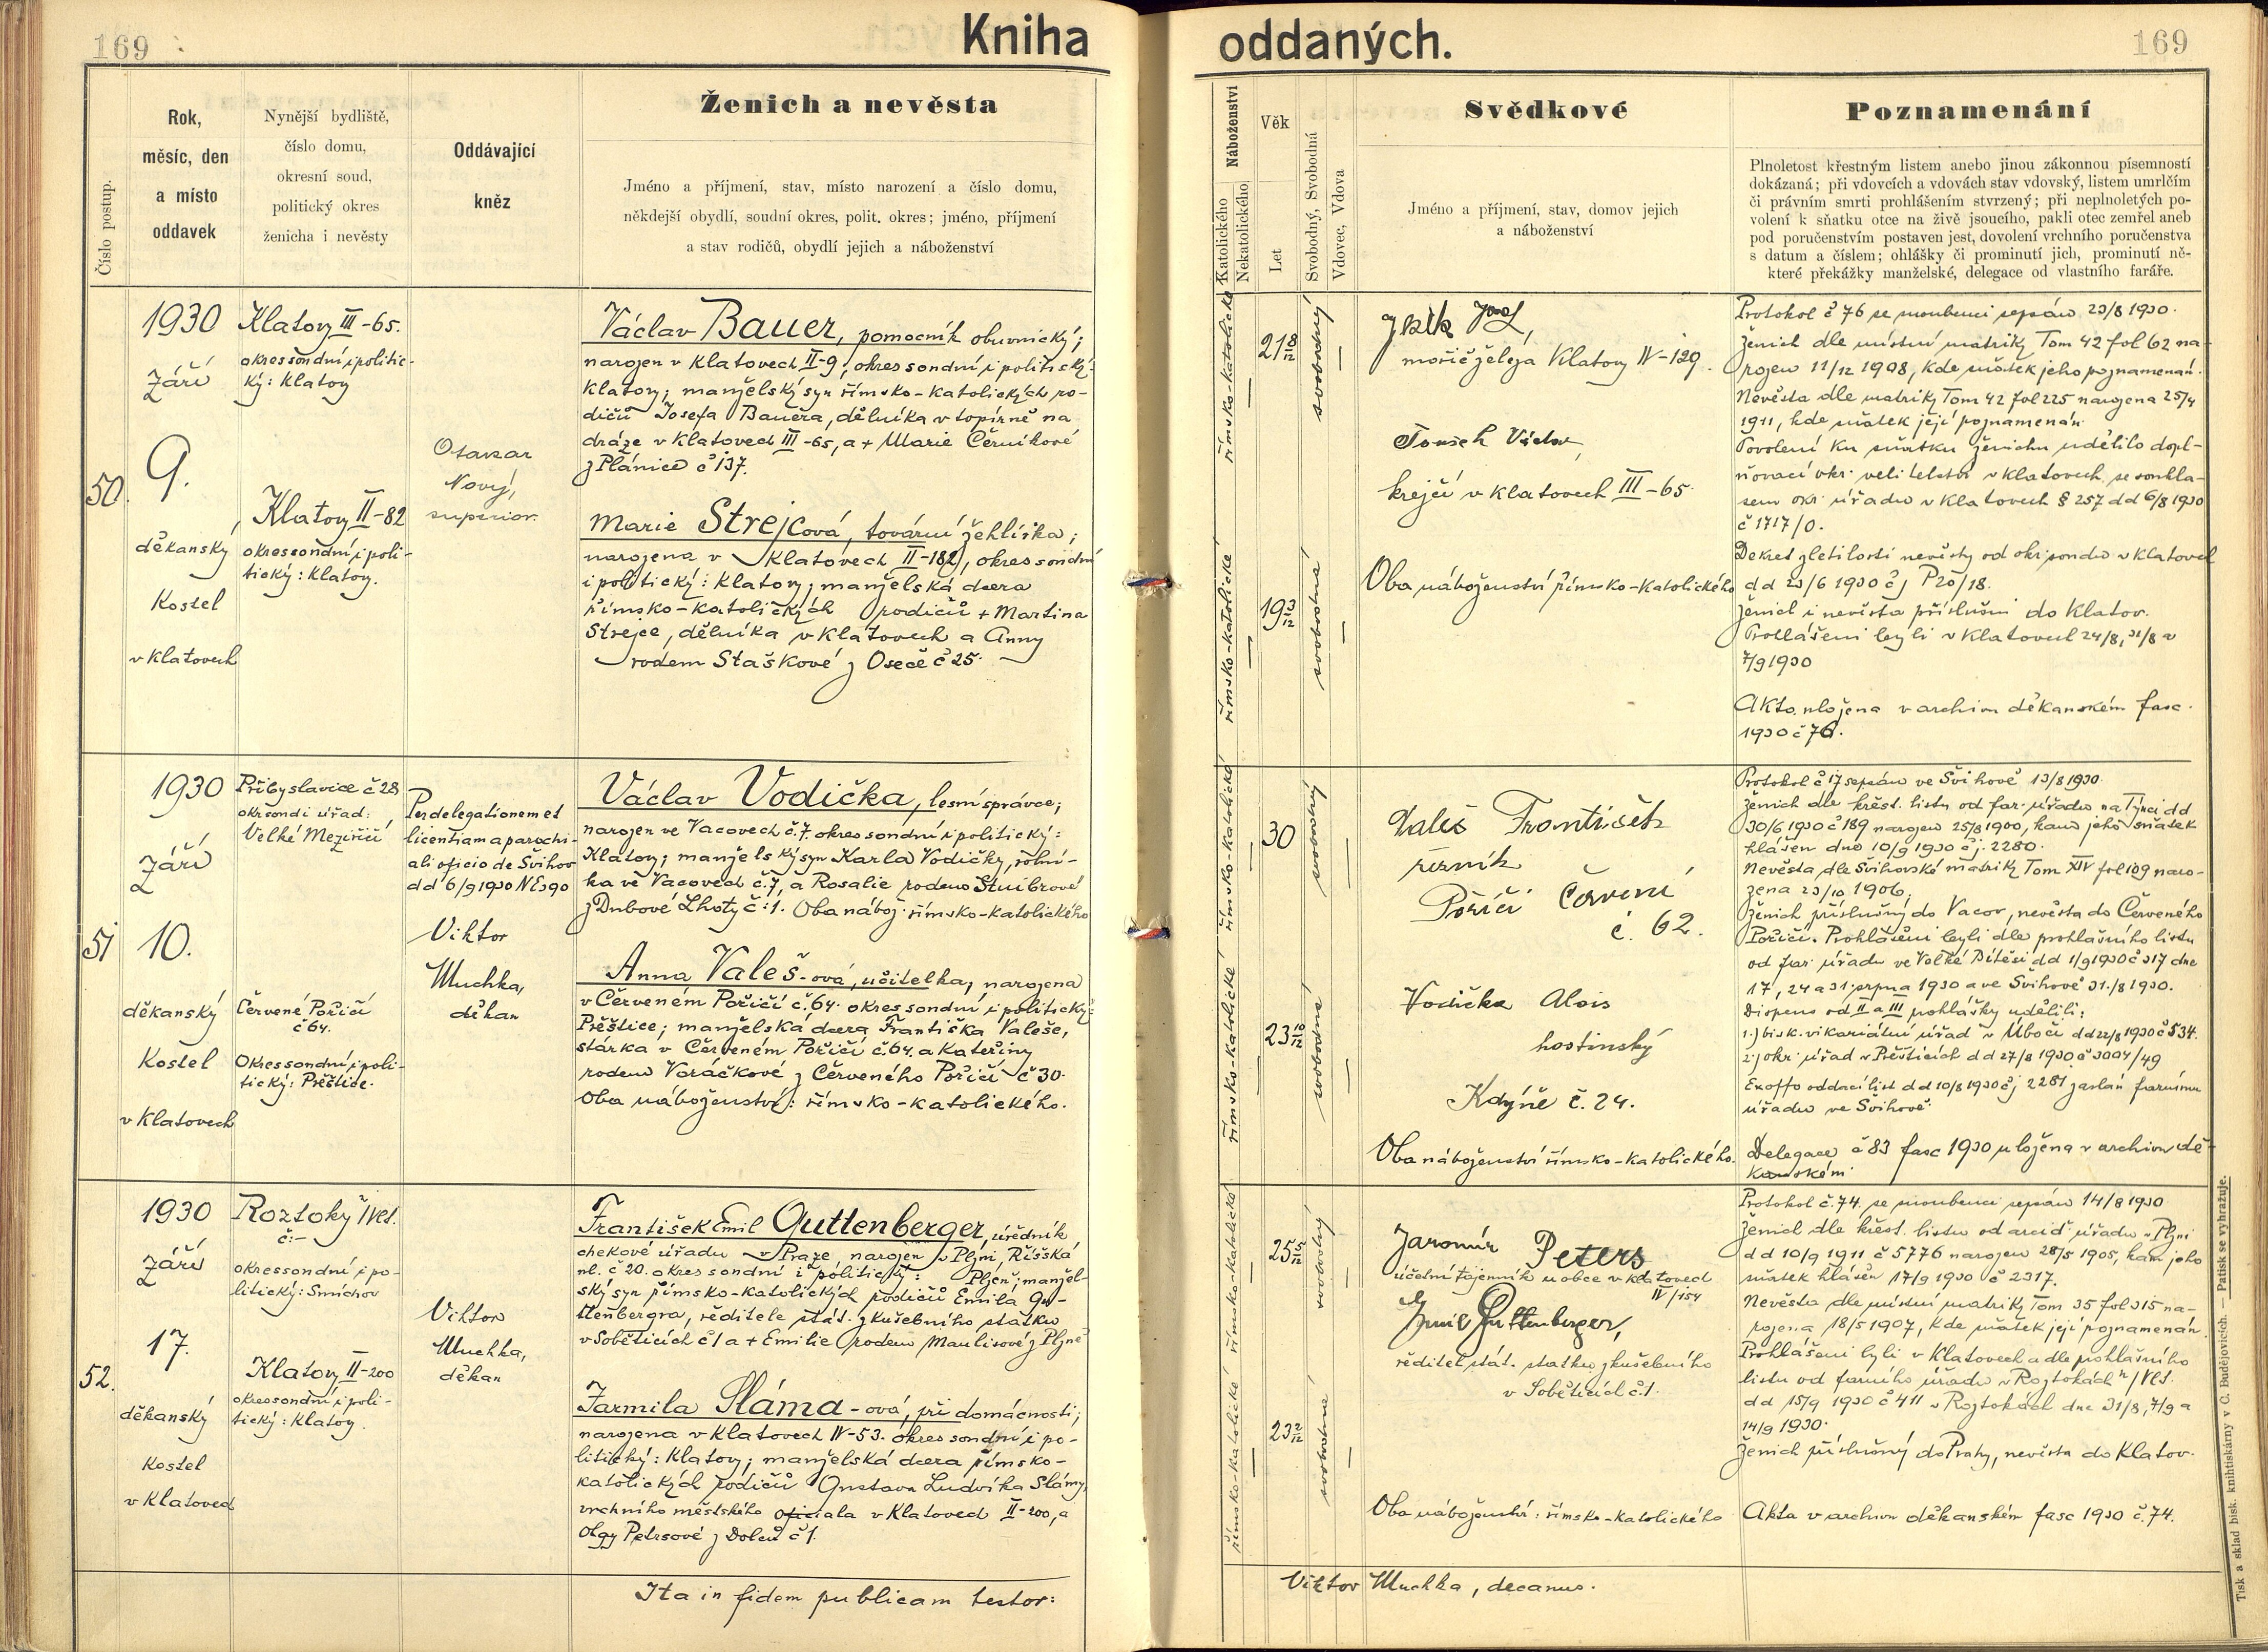 169
Kniha
oddaných.
169
Číslo postup.
Rok,
měsíc, den
a místo
oddavek
Nynější bydliště,
číslo domu,
okresní soud,
politický okres
ženicha i nevěsty
Oddávající
kněz
Ženich a nevěsta
Jméno a příjmení, stav, místo narození a číslo domu,
někdejší obydlí, soudní okres, polit. okres; jméno, příjmení
a stav rodičů, obydlí jejich a náboženství
Náboženství
Katolického
Nekatolického
Věk
Let
Svobodný, Svobodná
Vdovec, Vdova
Svědkové
Jméno a příjmení, stav, domov jejich
a náboženství
Poznamenání
Plnoletost křestným listem anebo jinou zákonnou písemností
dokázaná; při vdovcích a vdovách stav vdovský, listem umrlčím
či právním smrti prohlášením stvrzený; při neplnoletých po-
volení k sňatku otce na živě jsoucího, pakli otec zemřel aneb
pod poručenstvím postaven jest, dovolení vrchního poručenstva
s datum a číslem; ohlášky či prominutí jich, prominutí ně-
které překážky manželské, delegace od vlastního faráře.
50.
1930
Září
9.
děkanský
Kostel
v Klatovech
Klatovy III-65.
okres soudní i politic-
ký: Klatovy
Klatovy II-82
okres soudní i poli-
tický: Klatovy.
Otakar
Nový,
superior.
Václav Bauer, pomocník obuvnický;
narozen v Klatovech II-9, okres soudní i politický:
Klatovy; manželský syn římsko-katolických ro-
dičů Josefa Bauera, dělníka v topírně na
dráze v Klatovech III-65, a + Marie Černíkové
z Plánice č 137.
Marie Strejcová, tovární žehlířka;
narozena v Klatovech II-182, okres soudní
i politický: Klatovy; manželská dcera
římsko-katolických rodičů + Martina
Strejce, dělníka v Klatovech a Anny
rodem Staškové z Oseče č 25.
římsko-katolické
21 8/12
svobodný
římsko-katolické
19 3/12
svobodná
Josef,
mořič želeja Klatovy IV-129.
Toušek Václav,
krejčí v Klatovech III-65.
Oba náboženství římsko-katolického
Protokol č 76 se snoubenci sepsán 23/8 1930.
Ženich dle místní matriky Tom 42 fol 62 na-
rozen 11/12 1908, kde sňatek jeho poznamenán.
Nevěsta dle matriky Tom 42 fol 225 narozena 25/4
1911, kde sňatek její poznamenán.
Povolení ku sňatku ženichu udělilo dopl-
ňovací okr. velitelství v Klatovech, se souhla-
sem okr. úřadu v Klatovech § 257 dd 6/8 1930
č 1717/0.
Dekret zletilosti nevěsty od okr. soudu v Klatovech
dd 23/6 1930 čj P25/18.
Ženich i nevěsta příslušní do Klatov.
Prohlášeni byli v Klatovech 24/8, 31/8 a
7/9 1930
Akta uložena v archivu děkanském fasc.
1930 č 76.
51
1930
Září
10.
děkanský
Kostel
v Klatovech
Přibyslavice č 28,
okr. soudní úřad:
Velké Meziříčí
Červené Poříčí
č 64.
Okres soudní i poli-
tický: Přeštice.
Per delegationem et
licentiam a parochi-
ali oficio de Švihov
dd 6/9 1930 N E 390
Viktor
Muchka,
děkan
Václav Vodička, lesní správce;
narozen ve Vacovech č. 7. okres soudní i politický:
Klatovy; manželský syn Karla Vodičky, rolní-
ka ve Vacovech č. 7, a Rosalie rodem Štuibrové
z Dubové Lhoty č: 1. Oba nábož. římsko-katolického
Anna Valeš-ová, učitelka, narozena
v Červeném Poříčí č. 64. okres soudní i politický:
Přeštice; manželská dcera Františka Valeše,
stárka v Červeném Poříčí č. 64. a Kateřiny
rodem Voráčkové z Červeného Poříčí č 30.
Oba náboženství: římsko-katolického.
římsko-katolické
30
svobodný
římsko-katolické
23 10/12
svobodná
Valeš František
řezník
Poříčí Červené
č. 62.
Vodička Alois
hostinský
Kdýně č. 24.
Oba náboženství římsko-katolického.
Protokol č 17 sepsán ve Švihově 13/8 1930.
Ženich dle křest. listu od far. úřadu na Týnci dd
30/6 1930 č 189 narozen 25/8 1900, kam jeho sňatek
hlášen dne 10/9 1930 čj. 2280.
Nevěsta dle Švihovské matriky Tom XIV fol 109 naro-
zena 23/10 1906.
Ženich příslušný do Vacov, nevěsta do Červeného
Poříčí. Prohlášeni byli dle prohlašního listu
od far. úřadu ve Velké Bíteši dd 1/9 1930 č 317 dne
17, 24 a 31 srpna 1930 a ve Švihově 31./8 1930.
Dispens od II a III ohlášky udělili:
1.) bisk. vikariátní úřad v Úbočí dd 22/8 1930 č 534.
2.) okr. úřad v Přešticích dd 27/8 1930 č 3004/49
Exoffo oddací list dd 10/8 1930 čj 2281 zaslán farnímu
úřadu ve Švihově.
Delegace č 83 fasc 1930 uložena v archivu dě-
kanském
52.
1930
Září
17.
děkanský
Kostel
v Klatovech
Roztoky
č:-
okres soudní i po-
litický: Smíchov
Klatovy II-200
okres soudní i poli-
tický: Klatovy.
Viktor
Muchka,
děkan
František Emil Guttenberger, úředník
chekové úřadu v Praze, narozen v Plzni, Říšská
ul. č 20. okres soudní i politický: Plzeň; manžel-
ský syn římsko-katolických rodičů Emila Gu-
ttenbergra, ředitele stát. zkušebního statku
v Soběticích č 1 a + Emilie rodem Maulisové z Plzně
Jarmila Sláma-ová, při domácnosti;
narozena v Klatovech IV-53. okres soudní i po-
litický: Klatovy; manželská dcera římsko-
katolických rodičů Gustava Ludvíka Slámy,
vrchního městského oficiala v Klatovech II-200, a
Olgy Petrsové z Dolců č 1.
římsko-katolické
25 5/12
svobodný
římsko-katolické
23 2/12
svobodná
Jaromír Peters
účetní tajemník u obce v Klatovech
IV/154
Emil Guttenberger,
ředitel stát. statku zkušebního
v Soběticích č. 1.
Oba náboženství: římsko-katolického
Protokol č. 74 se snoubenci sepsán 14/8 1930
Ženich dle křest. listu od arcid. úřadu v Plzni
dd 10/9 1911 č 5776 narozen 28/5 1905, kam jeho
sňatek hlášen 17/9 1930 č 2317.
Nevěsta dle místní matriky Tom 35 fol 315 na-
rozena 18/5 1907, kde sňatek její poznamenán.
Prohlášeni byli v Klatovech a dle prohlašního
listu od farního úřadu v Roztokách n/Vlt.
dd 15/9 1930 č 411 v Roztokách dne 31/8, 7/9 a
14/9 1930.
Ženich příslušný do Prahy, nevěsta do Klatov.
Akta v archivu děkanském fasc 1930 č. 74.
Ita in fidem publicam testor:
Viktor Muchka, decanus.
Tisk a sklad bisk. knihtiskárny v Č. Budějovicích. — Patisk se vyhražuje.